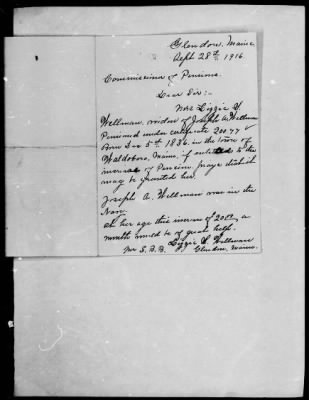 Glendon, Maine,
Sept 28th, 1916
Commissioner of Pensions.
Dear Sir:-
Mrs Lizzie Y.
Wellman, widow of Joseph A. Wellman
Pensioned under certificate 20077
Born Dec 5th 1836. in the town of
Waldoboro, Maine, if entitled to the
increase of Pension, prays that it
may be granted her.
Joseph A. Wellman was in the
Navy.
At her age this increase of a
month would be of great help.
Lizzie Y. Wellman
Mr S. B. B. Glendon, Maine.